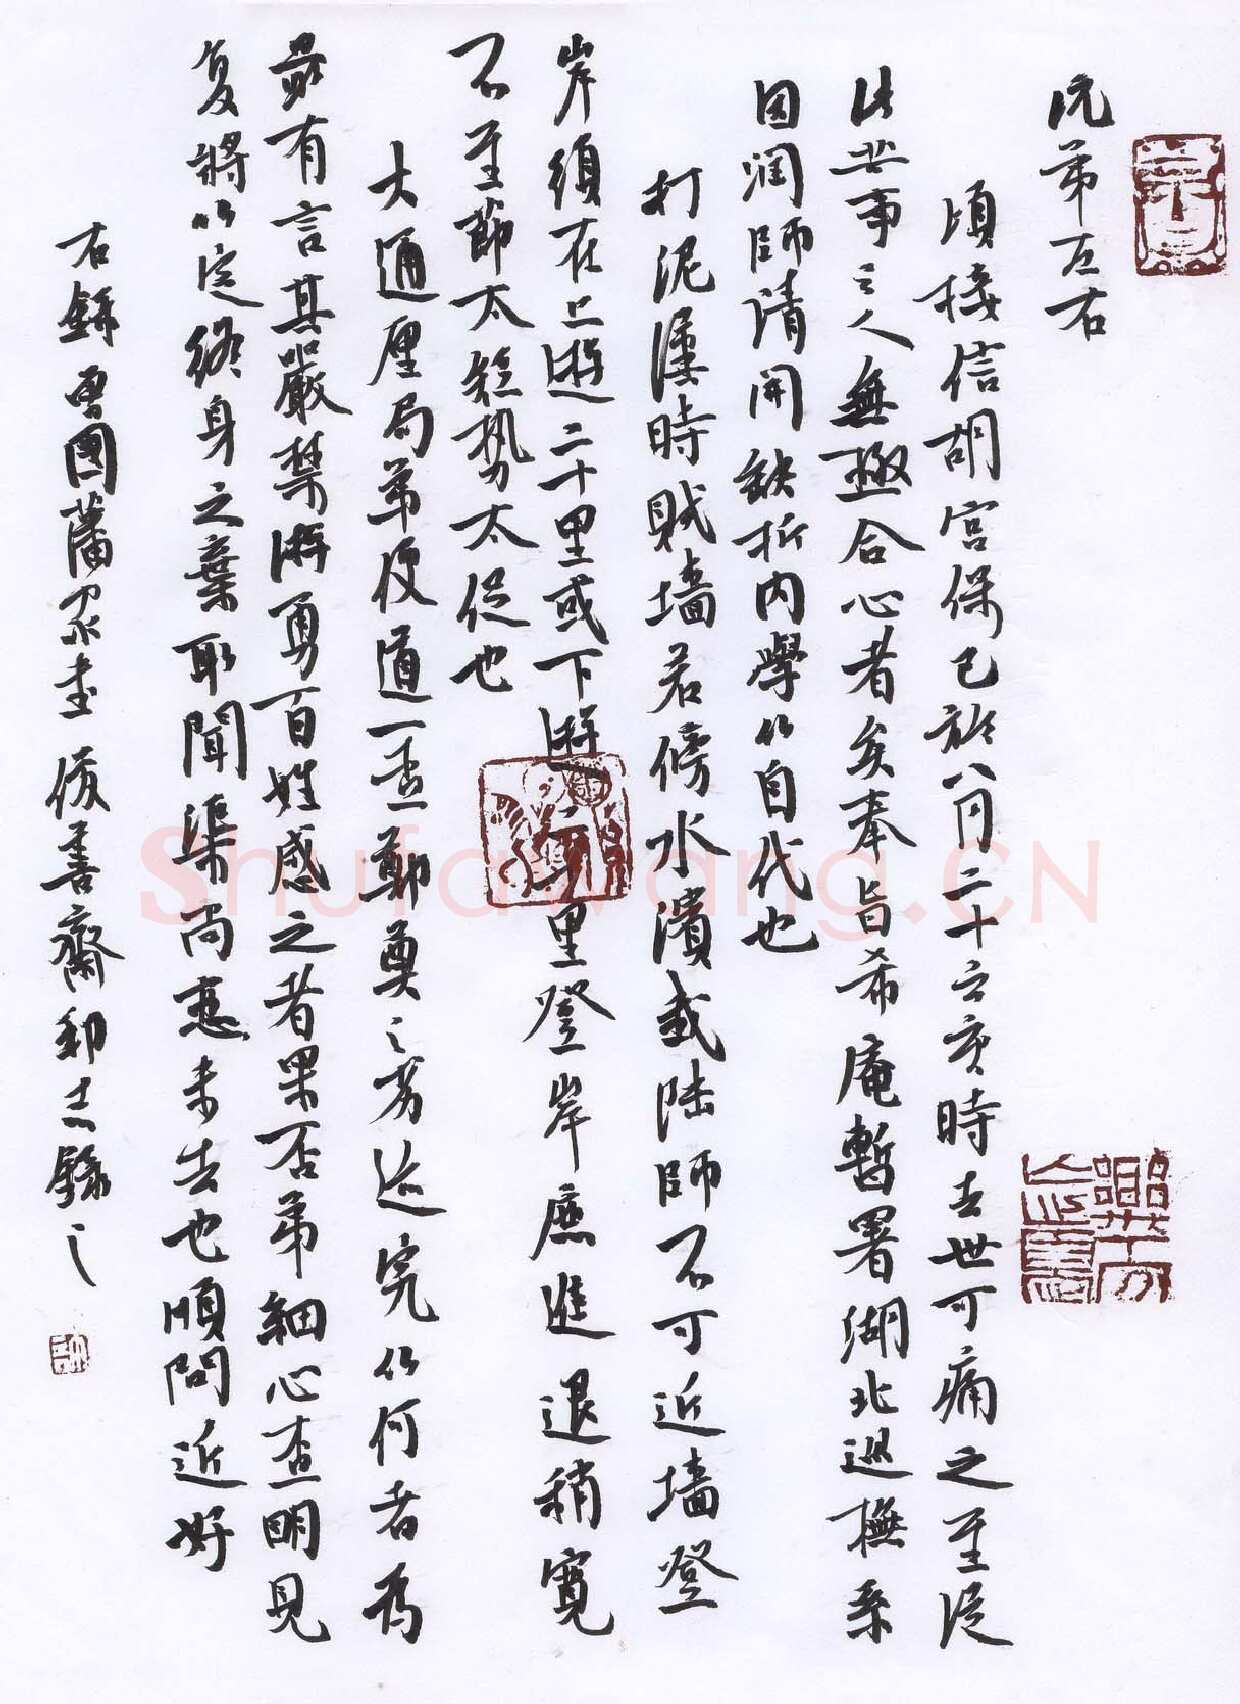 沅弟左右
頃接信胡宫保已於八月二十六亥時去世可痛之至從
此共事之人無極合心者矣奉旨希庵暫署湖北巡撫系
因润師请開缺折内學以自代也
打泥漊時賊墙若傍水濱或陆師不可近墙登
岸須在上游二十里或下游二十里登岸庶進退稍寬
不至節太短势太促也
大通厘局弟復道一查鄭奠之劣迹究以何者為
最有言其嚴禁游勇百姓感之者果否弟細心查明見
复將以定終身之棄取聞渠尚在未去也順問近好
右錄曾國藩家書 養齋 志錄之
Shufawang.CN